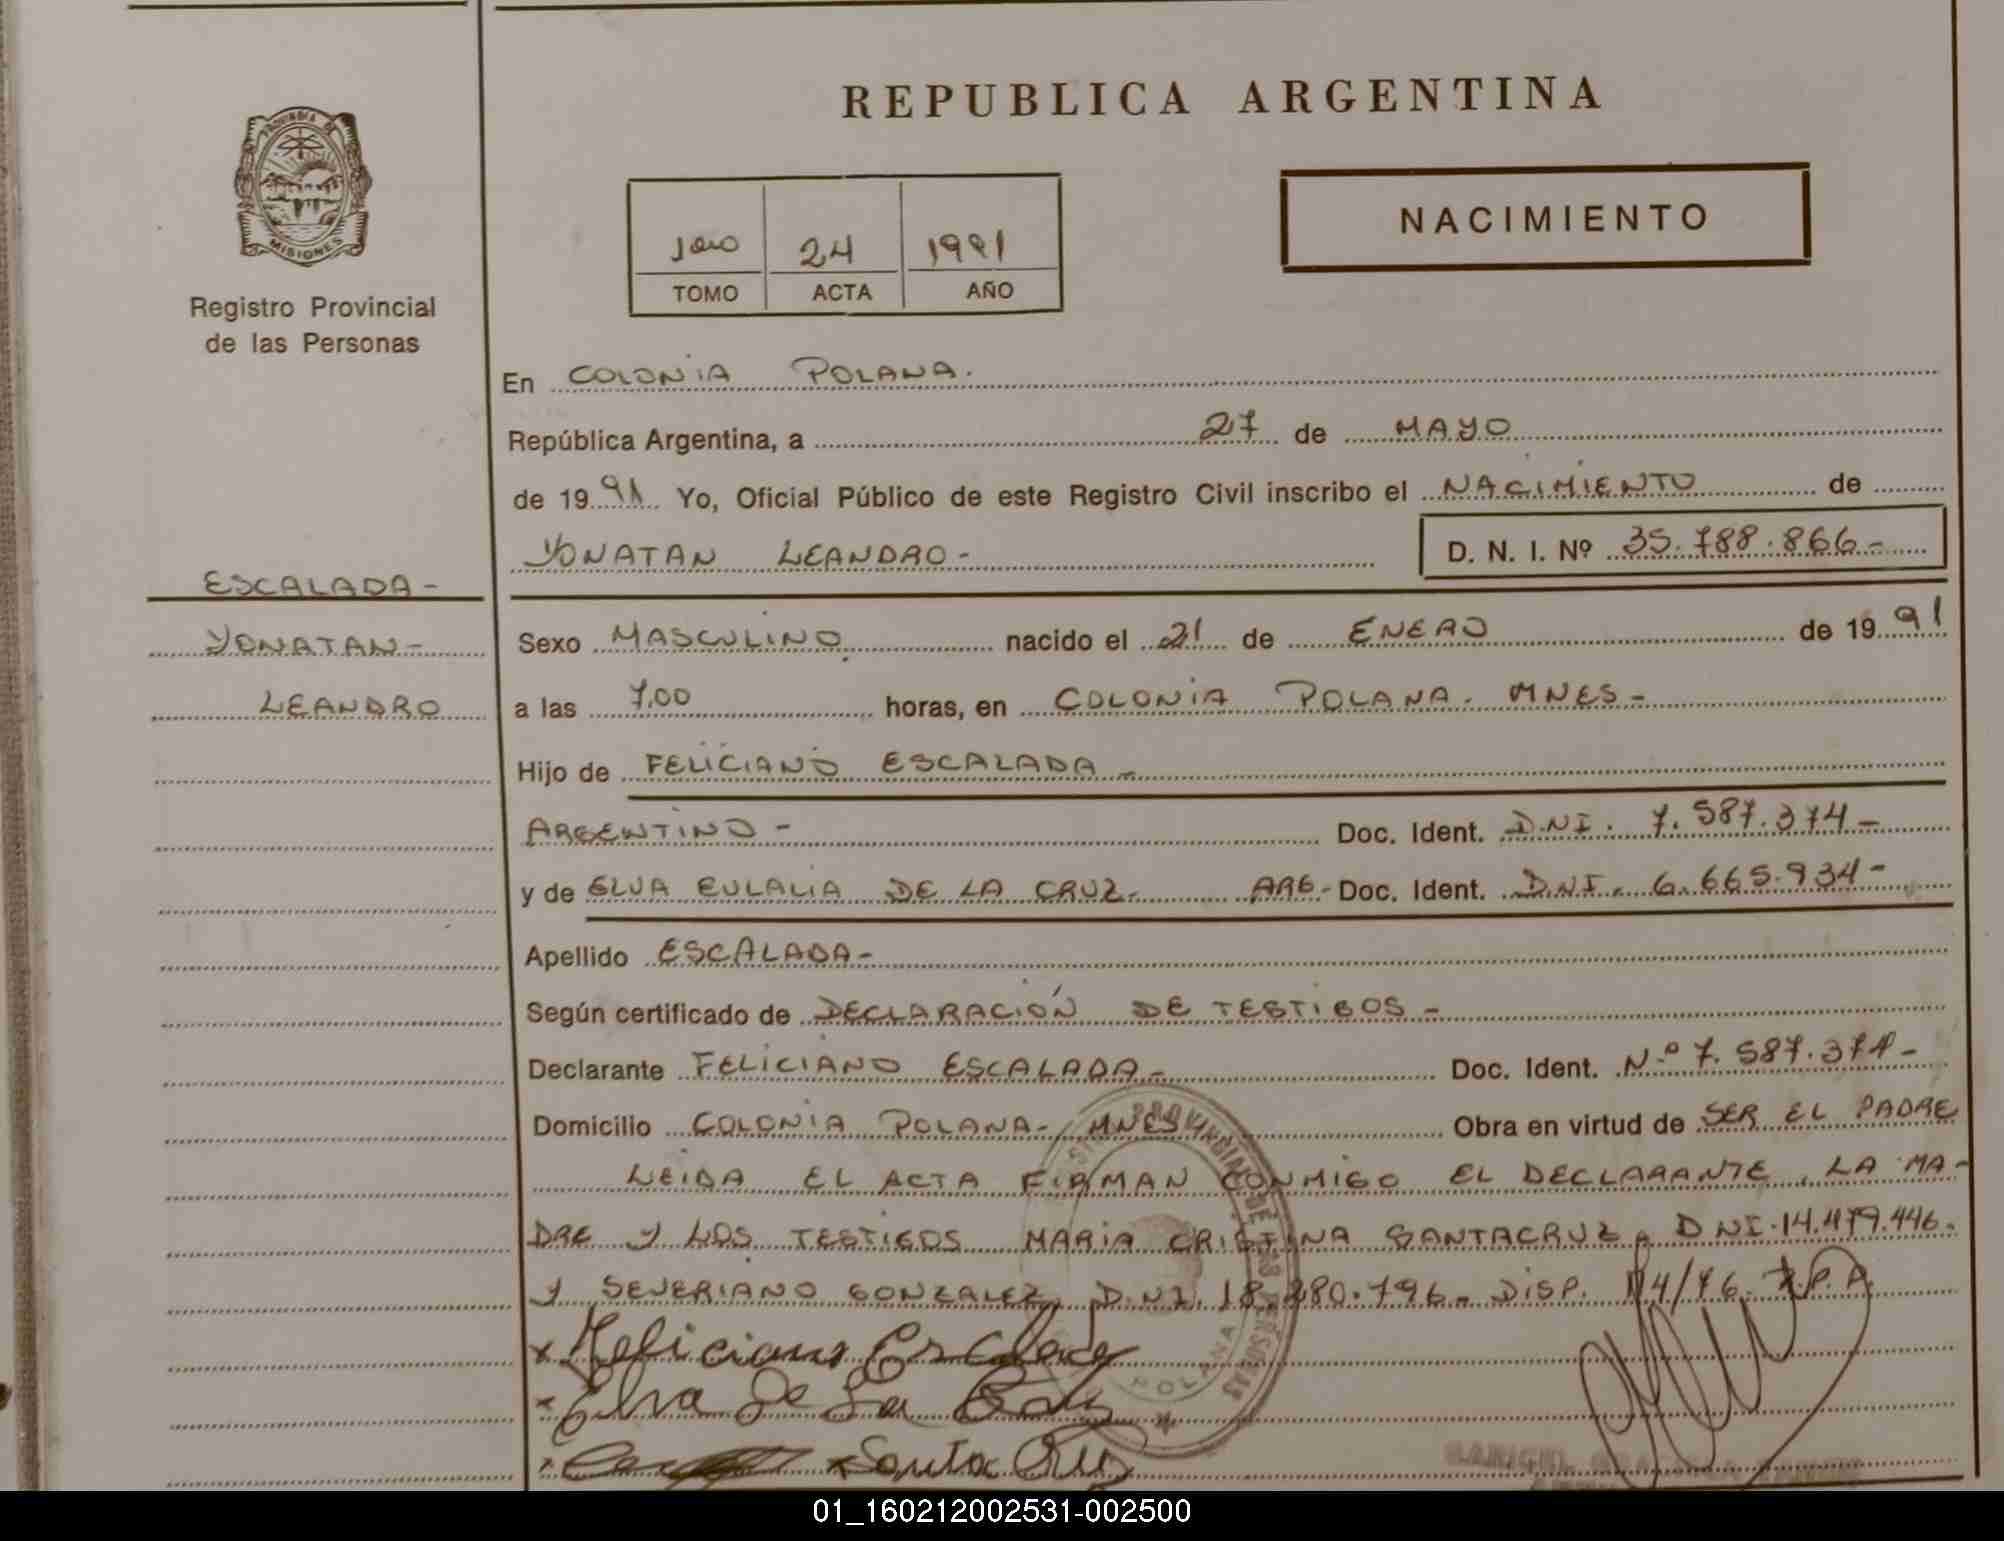 REPUBLICA ARGENTINA
PROVINCIA DE
MISIONES
Registro Provincial
de las Personas
1ero 24 1991
TOMO ACTA AÑO
NACIMIENTO
En COLONIA POLANA.
República Argentina, a 27 de MAYO
de 1991 Yo, Oficial Público de este Registro Civil inscribo el NACIMIENTO de
YONATAN LEANDRO- D. N. I. Nº 35.788.866-
ESCALADA-
YONATAN-
LEANDRO
Sexo MASCULINO nacido el 21 de ENERO de 1991
a las 7,00 horas, en COLONIA POLANA. MNES-
Hijo de FELICIANO ESCALADA-
ARGENTINO- Doc. Ident. D.NI. 7.587.374-
y de ELVA EULALIA DE LA CRUZ- ARG- Doc. Ident. D.NI. 6.665.934-
Apellido ESCALADA-
Según certificado de DECLARACIÓN DE TESTIGOS-
Declarante FELICIANO ESCALADA- Doc. Ident. N.º 7.587.374-
Domicilio COLONIA POLANA- MNES Obra en virtud de SER EL PADRE
LEIDA EL ACTA FIRMAN CONMIGO EL DECLARANTE, LA MA-
DRE Y LOS TESTIGOS MARIA CRISTINA SANTACRUZ, DNI.14.479.446.
Y SEVERIANO GONZALEZ, D.NI. 18.280.796- DISP. 114/76. R.P.P.
x Feliciano Escalada
x Elva De La Cruz
x Santa Cruz
POLANA
01_160212002531-002500